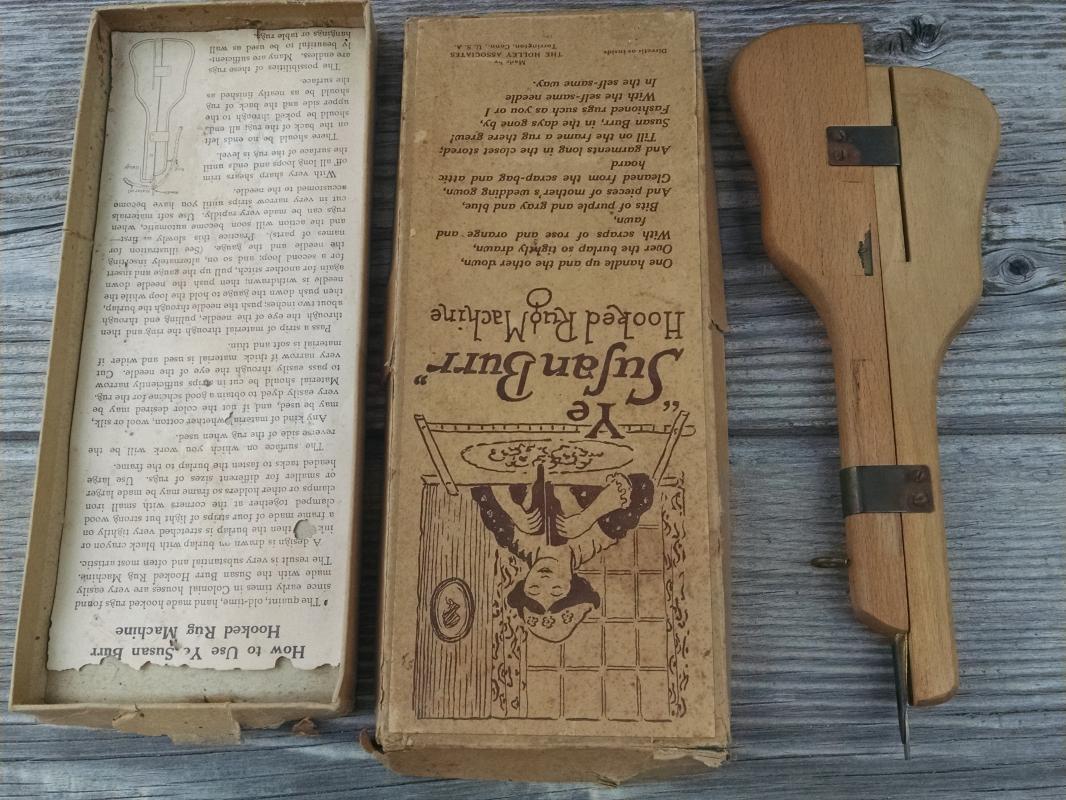 How to Use Ye Susan Burr
Hooked Rug Machine
The quaint, old-time, hand made hooked rugs found
since early times in Colonial houses are very easily
made with the Susan Burr Hooked Rug Machine.
The result is very substantial and often most artistic.
A design is drawn on burlap with black crayon or
ink then the burlap is stretched very tightly on
a frame made of four strips of light but strong wood
clamped together at the corners with small iron
clamps or other holders so frame may be made larger
or smaller for different sizes of rugs. Use large
headed tacks to fasten the burlap to the frame.
The surface on which you work will be the
reverse side of the rug when used.
Any kind of material, whether cotton, wool or silk,
may be used, and if not the color desired may be
very easily dyed to obtain a good scheme for the rug.
Material should be cut in strips sufficiently narrow
to pass easily through the eye of the needle. Cut
very narrow if thick material is used and wider if
material is soft and thin.
Pass a strip of material through the ring and then
through the eye of the needle, pulling end through
about two inches; push the needle through the burlap,
then push down the gauge to hold the loop while the
needle is withdrawn; then push the needle down
again for another stitch, pull up the gauge and insert
for a second loop; and so on, alternately inserting
the needle and the gauge. (See illustration for
names of parts). Practice this slowly at first—
and the action will soon become automatic, when
rugs can be made very rapidly. Use soft materials
cut in very narrow strips until you have become
accustomed to the needle.
With very sharp shears trim
off all long loops and ends until
the surface of the rug is level.
There should be no ends left
on the back of the rug all ends
should be poked through to the
upper side and the back of rug
should be as neatly finished as
the surface.
The possibilities of these rugs
are endless. Many are sufficient-
ly beautiful to be used as wall
hangings or table rugs.
"Ye
Susan Burr"
Hooked Rug Machine
One handle up and the other down,
Over the burlap so tightly drawn,
With scraps of rose and orange and
fawn,
Bits of purple and gray and blue,
And pieces of mother's wedding gown,
Gleaned from the scrap-bag and attic
hoard
And garments long in the closet stored;
Till on the frame a rug there grew!
Susan Burr, in the days gone by,
Fashioned rugs such as you or I
With the self-same needle
In the self-same way.
Made by
THE HOLLEY ASSOCIATES
Torrington, Conn., U. S. A.
Directions Inside